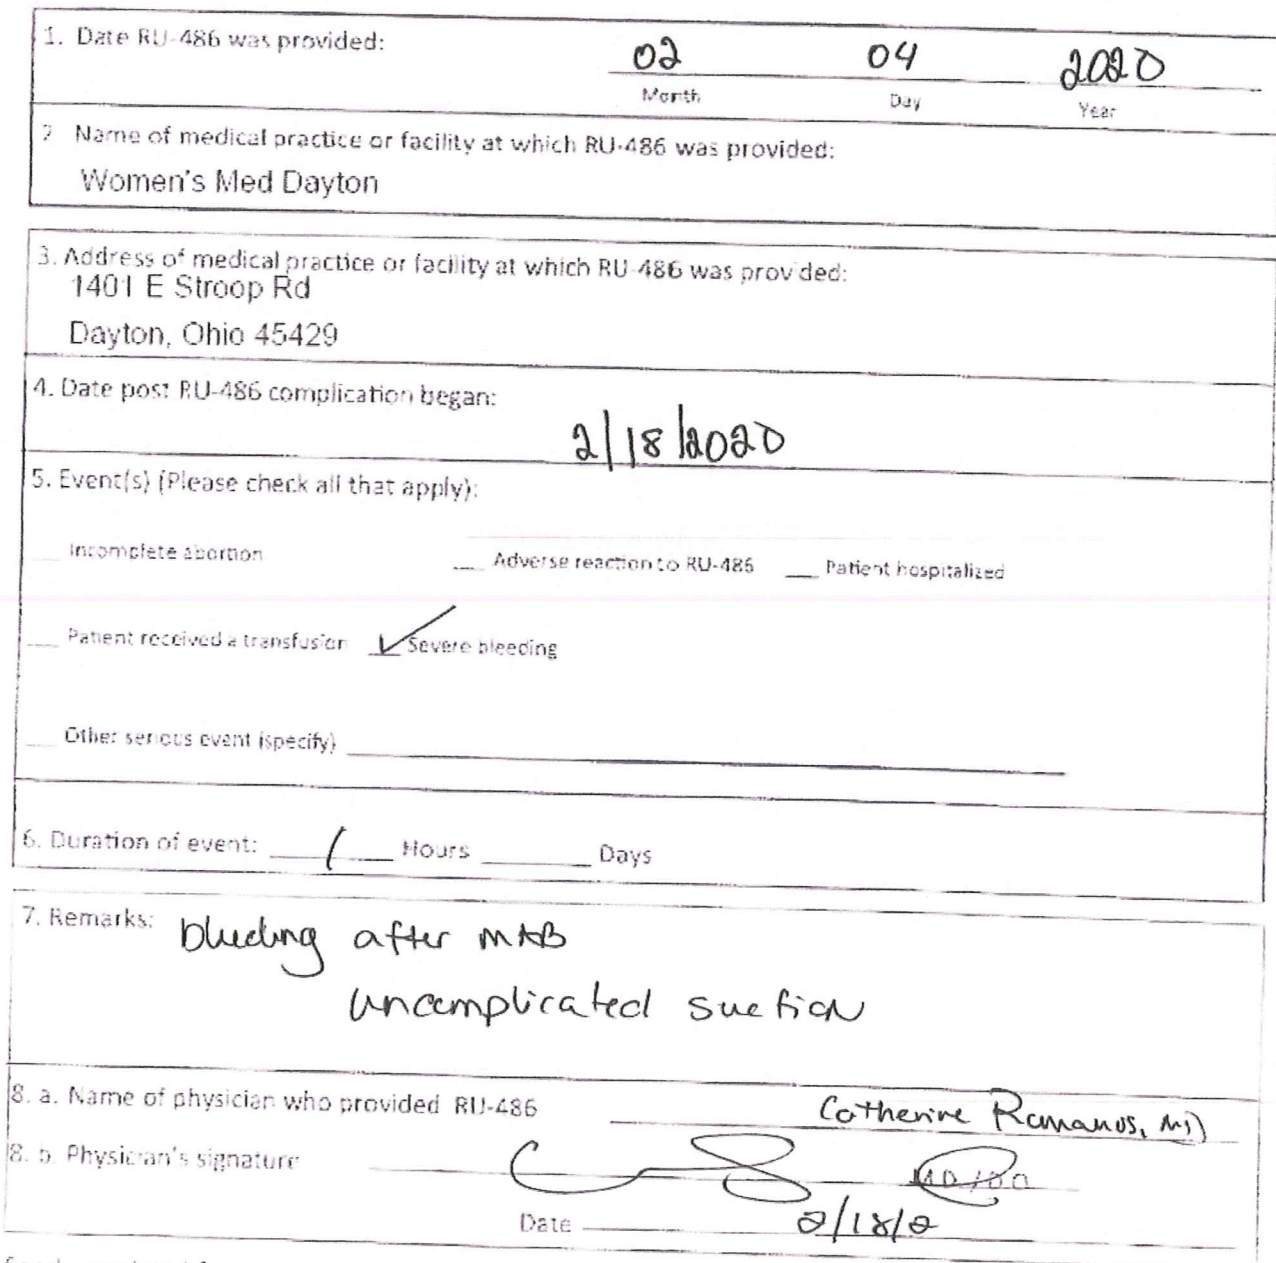 1. Date RU-486 was provided:
02 04 2020
Month Day Year
2 Name of medical practice or facility at which RU-486 was provided:
Women's Med Dayton
3. Address of medical practice or facility at which RU-486 was provided:
1401 E Stroop Rd
Dayton, Ohio 45429
4. Date post RU-486 complication began:
2/18/2020
5. Event(s) (Please check all that apply):
Incomplete abortion Adverse reaction to RU-486 Patient hospitalized
Patient received a transfusion ✓ Severe bleeding
Other serious event (specify)
6. Duration of event: 1 Hours Days
7. Remarks: bleeding after MAB
uncomplicated suction
8. a. Name of physician who provided RU-486 Catherine Romanos, MD
8. b. Physician's signature MD/DO
Date 2/18/2